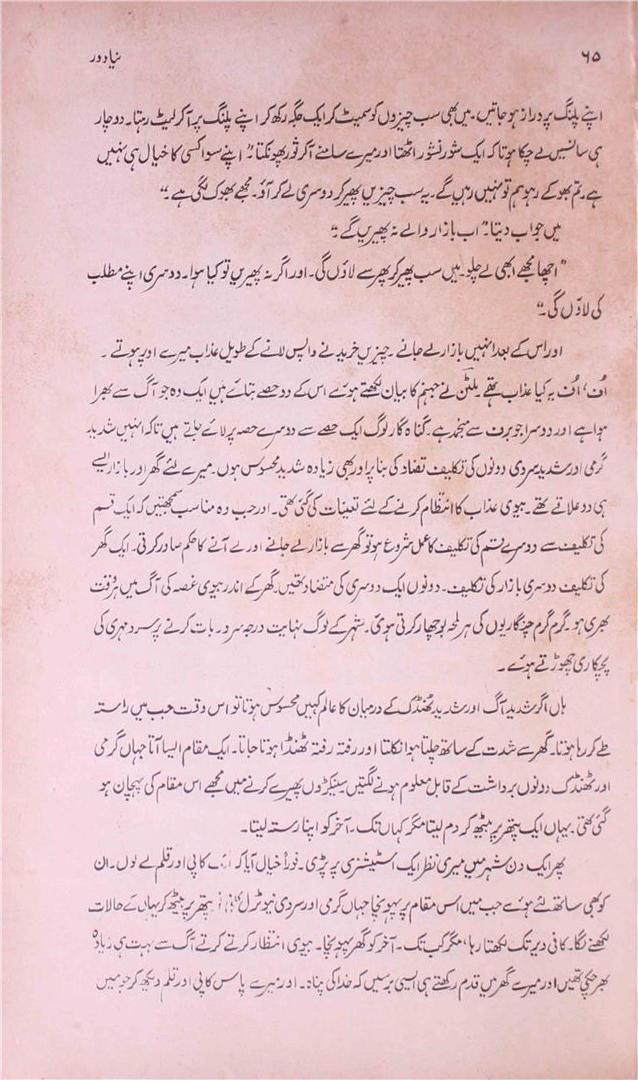 ۶۵ نیا دور
اپنے پلنگ پر دراز ہو جاتیں۔ میں بھی سب چیزوں کو سمیٹ کر ایک جگہ رکھ کر اپنے پلنگ پر آ کر لیٹ رہتا۔ دو چار
ہی سانسیں لے چکا ہوتا کہ ایک شور نشور اٹھتا اور میرے سامنے آ کر ثور پھونکتا۔" اپنے سوا کسی کا خیال ہی نہیں
ہے۔ تم بھوکے رہو ہم تو نہیں رہیں گے۔ یہ سب چیزیں پھیر کر دوسری لے کر آؤ۔ مجھے بھوک لگی ہے۔"
میں جواب دیتا۔" اب بازار والے نہ پھیریں گے۔"
"اچھا مجھے ابھی لے چلو۔ میں سب پھیر کر پھر سے لاؤں گی۔ اور اگر نہ پھیریں تو کیا ہوا۔ دوسری اپنے مطلب
کی لاؤں گی۔"
اور اس کے بعد انہیں بازار لے جانے۔ چیزیں خریدنے واپس لانے کے طویل عذاب میرے اوپر ہوتے۔
اُف، اُف یہ کیا عذاب تھے ملٹن نے جہنم کا بیان لکھتے ہوئے اس کے دو حصے بتائے ہیں ایک وہ جو آگ سے بھرا
ہوا ہے اور دوسرا جو برف سے منجمد ہے۔ گناہ گار لوگ ایک حصے سے دوسرے حصہ پر لائے جاتے ہیں تاکہ انہیں شدید
گرمی اور شدید سردی دونوں کی تکلیف تضاد کی بنا پر اور بھی زیادہ شدید محسوس ہوں۔ میرے لئے گھر اور بازار ایسے
ہی دو علاقے تھے۔ بیوی عذاب کا انتظام کرنے کے لئے تعینات کی گئی تھی۔ اور جب وہ مناسب سمجھتیں کہ ایک قسم
کی تکلیف سے دوسرے قسم کی تکلیف کا عمل شروع ہو تو گھر سے بازار لے جانے اور لے آنے کا حکم صادر کرتی۔ ایک گھر
کی تکلیف دوسری بازار کی تکلیف۔ دونوں ایک دوسری کی متضاد تھیں۔ گھر کے اندر بیوی غصہ کی آگ میں ہر وقت
بھری ہو۔ گرم گرم چنگاریوں کی ہر لمحہ بوچھار کرتی ہوئی۔ شہر کے لوگ نہایت درجہ سرد۔ بات کرنے پر سرد مہری کی
پچکاری چھوڑتے ہوئے۔
ہاں اگر شدید آگ اور شدید ٹھنڈک کے درمیان کا عالم کہیں محسوس ہوتا تو اس وقت جب میں راستہ
طے کر رہا ہوتا۔ گھر سے شدت کے ساتھ جلتا ہوا نکلتا اور رفتہ رفتہ ٹھنڈا ہوتا جاتا۔ ایک مقام ایسا آتا جہاں گرمی
اور ٹھنڈک دونوں برداشت کے قابل معلوم ہونے لگتیں سینکڑوں پھیرے کرنے میں مجھے اس مقام کی پہچان ہو
گئی تھی۔ یہاں ایک پتھر پر بیٹھ کر دم لیتا مگر کہاں تک۔ آخر کو اپنا رستہ لیتا۔
پھر ایک دن شہر میں میری نظر ایک اسٹیشنری پر پڑی۔ فوراً خیال آیا کہ کاپی اور قلم لے لوں۔ ان
کو بھی ساتھ لئے ہوئے جب میں اس مقام پر پہونچا جہاں گرمی اور سردی نیوٹرل پتھر پر بیٹھ کر یہاں کے حالات
لکھنے لگا۔ کافی دیر تک لکھتا رہا، مگر کب تک۔ آخر کو گھر پہونچا۔ بیوی انتظار کرتے کرتے آگ سے بہت ہی زیادہ
بھر چکی تھیں اور میرے گھر میں قدم رکھتے ہی ایسی برسیں کہ خدا کی پناہ۔ اور میرے پاس کاپی اور قلم دیکھ کر جو میں